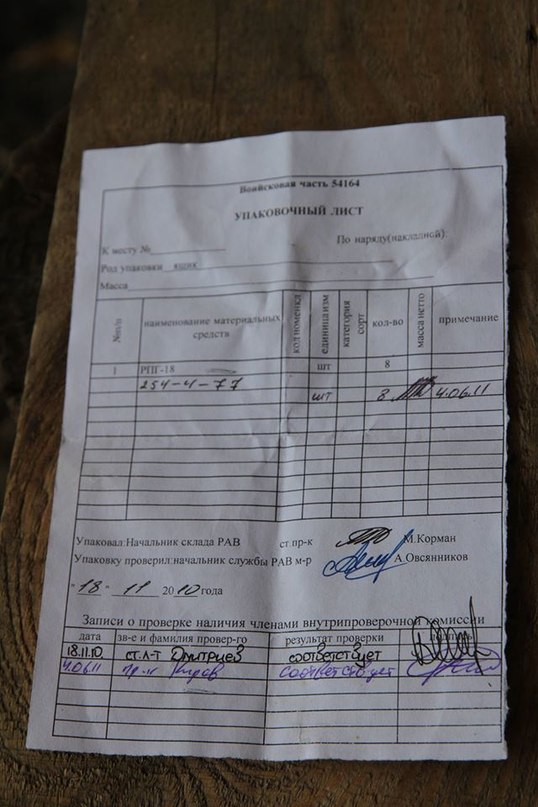 Воийсковая часть 54164
УПАКОВОЧНЫЙ ЛИСТ
К месту № По наряду(накладной)
Род упаковки ящик
Масса
№п/п наименование материальных средств код номенка единица изм категория сорт кол-во масса нетто примечание
1 РПГ-18 шт 8
254-4-77
шт 8 4.06.11
Упаковал:Начальник склада РАВ ст.пр-к М.Корман
Упаковку проверил:начальник службы РАВ м-р А.Овсянников
"18" 11 2010 года
Записи о проверке наличия членами внутрипроверочной комиссии
дата зв-е и фамилия провер-го результат проверки подпись
18.11.10 ст.л-т Дмитриев соответствует
4.06.11 пр-к соответствует